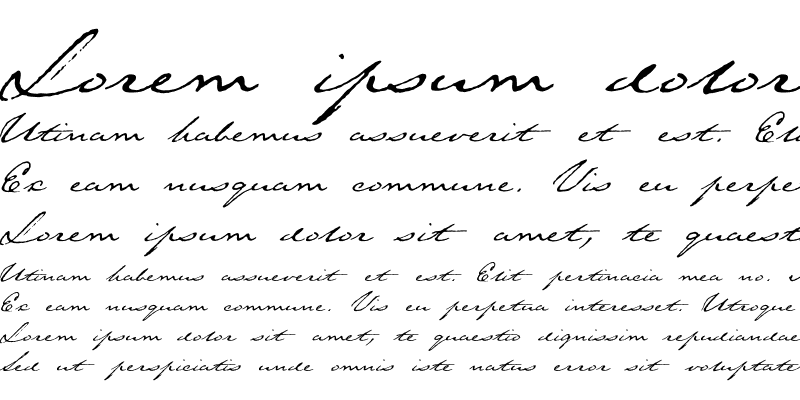 Lorem ipsum dolor
Utinam habemus assueverit et est. Eli
Ex eam nusquam commune. Vis eu perpe
Lorem ipsum dolor sit amet, te quaest
Utinam habemus assueverit et est. Elit pertinacia mea no. v
Ex eam nusquam commune. Vis eu perpetua interesset. Utroque
Lorem ipsum dolor sit amet, te quaestio dignissim repudiandae
Sed ut perspiciatis unde omnis iste natus error sit voluptate